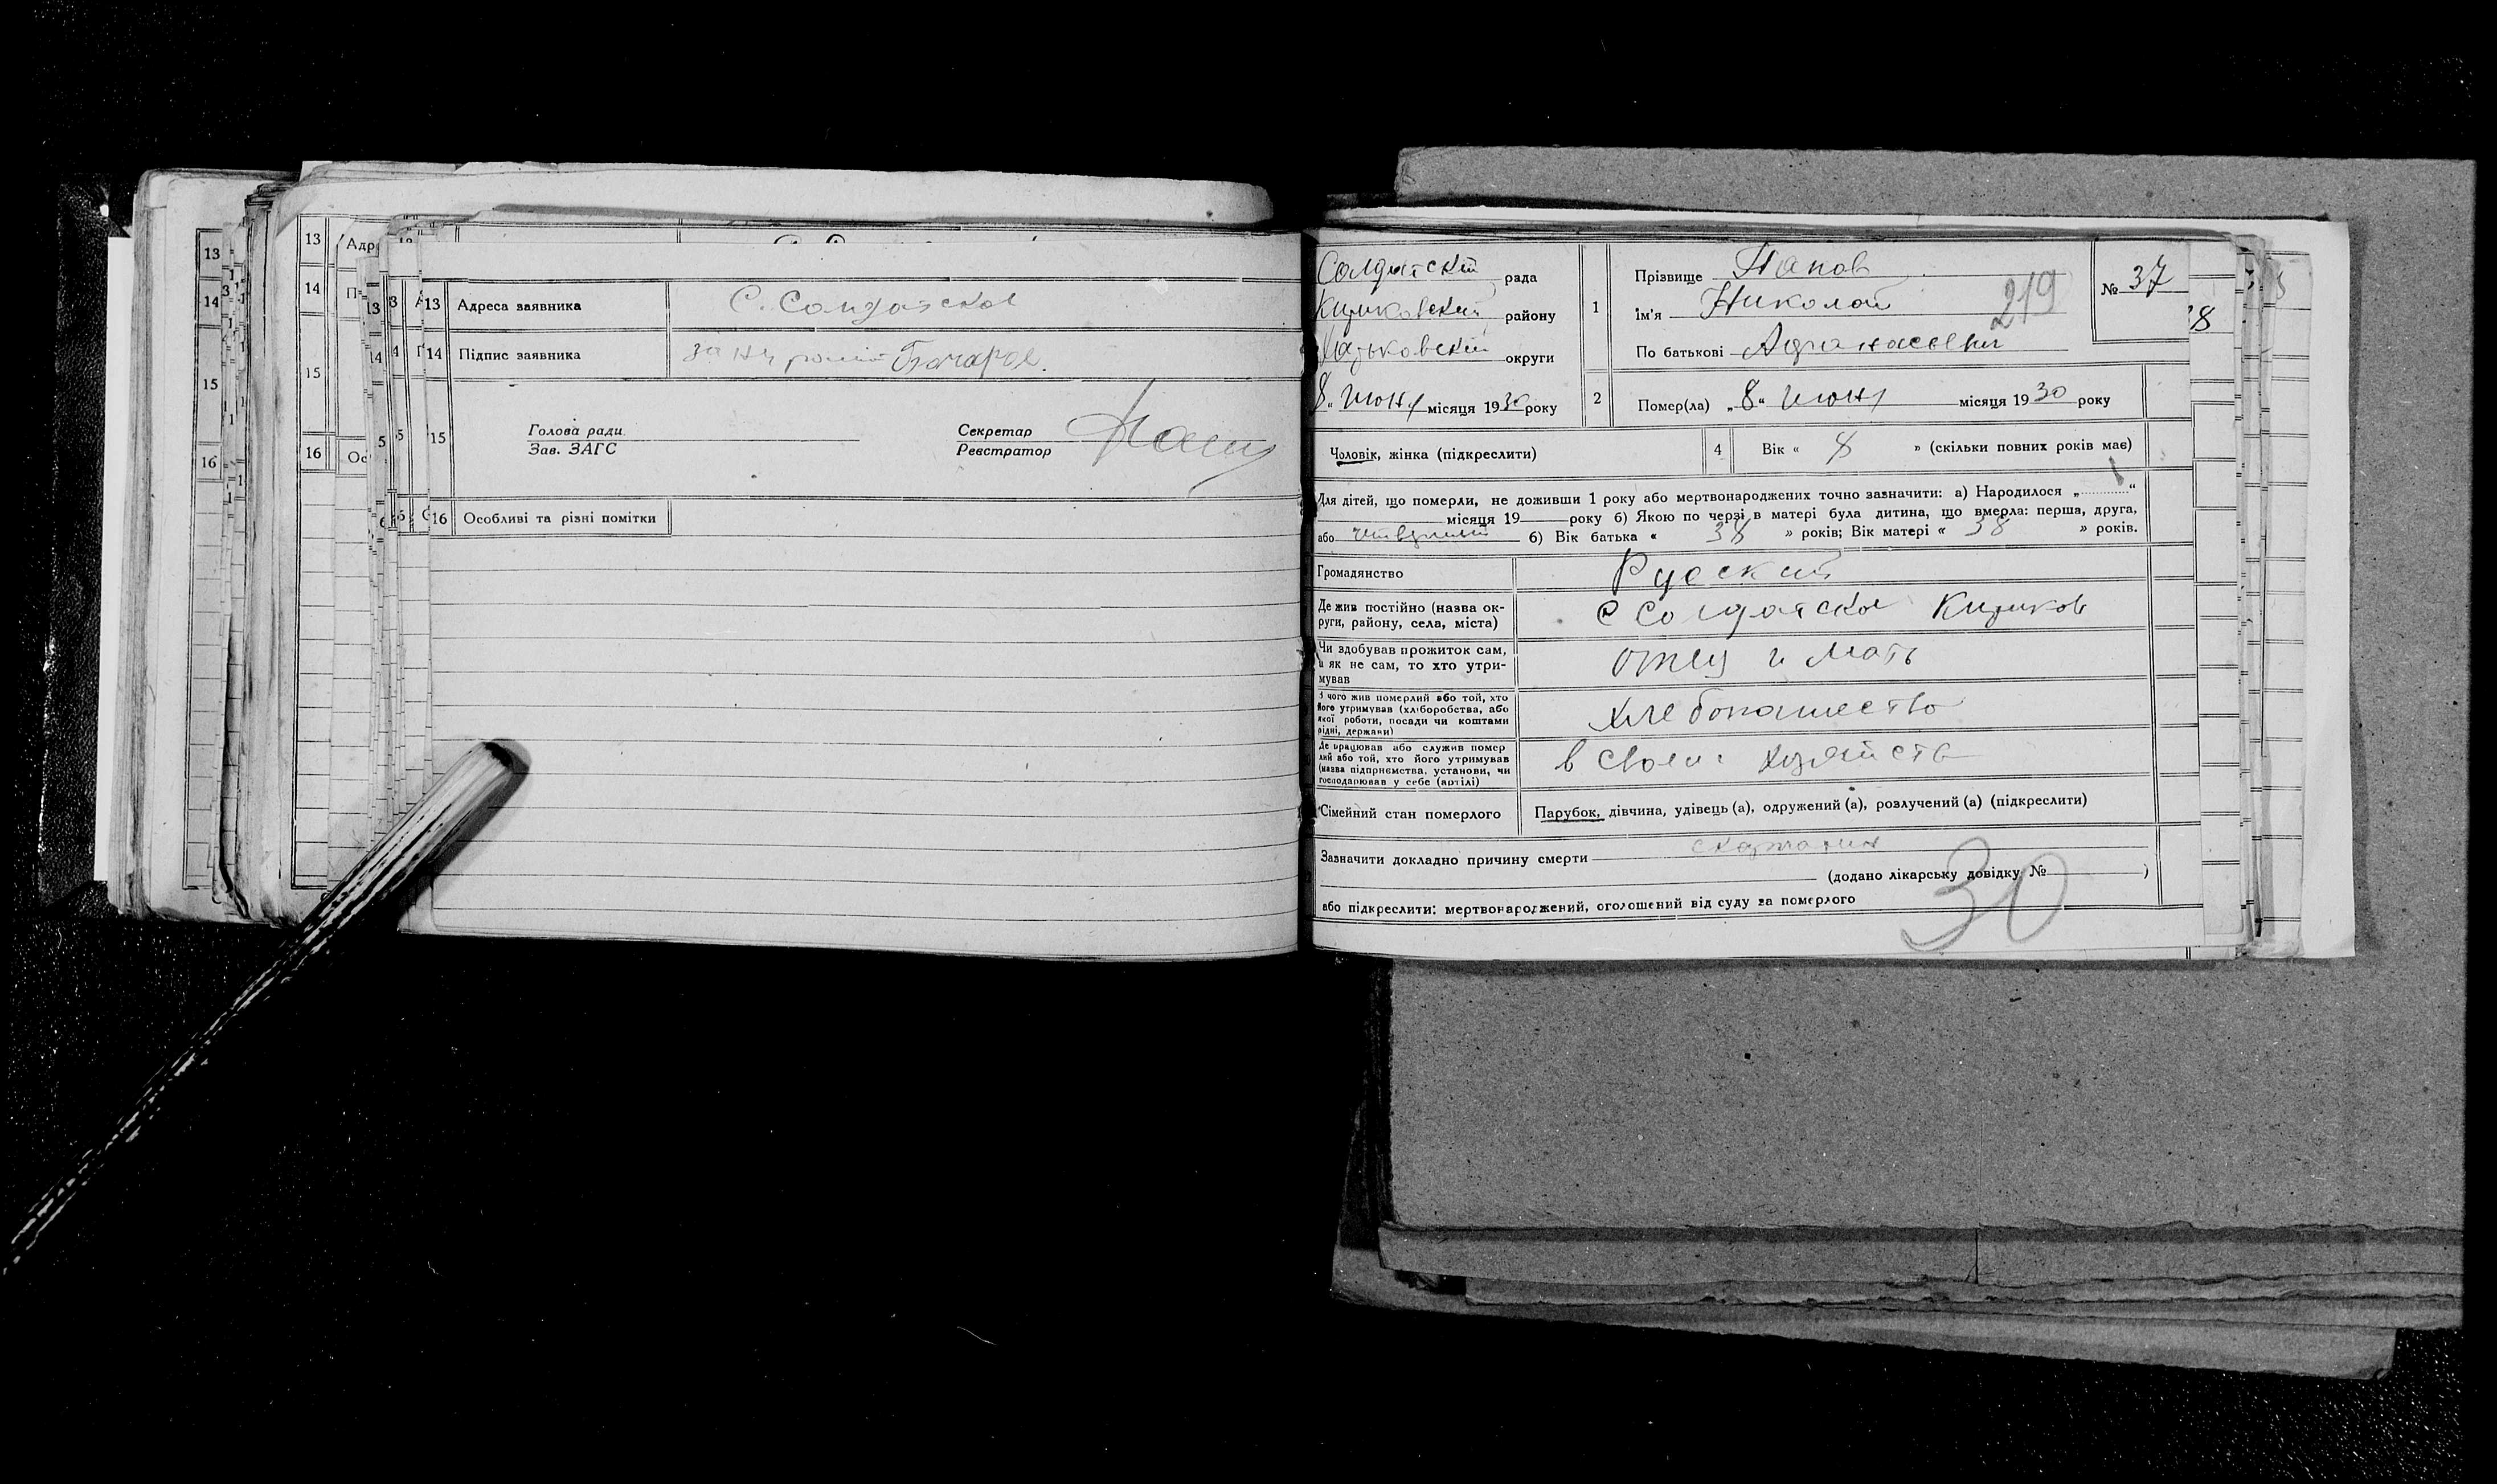 13
14
16
13
14
15
16
Адр
Ос
13 Адреса заявника С. Солдатское
14 Підпис заявника
15 Голова ради
Зав. ЗАГС
Секретар
Реєстратор
16 Особливі та різні помітки
Солдатский рада
Кириковский району
Харьковский округи
8 " июня місяця 1930 року
1
Прізвище Попов
Ім'я Николай
219
По батькові Афанасьевич
№ 37
38
2 Помер(ла) „8“ июня місяця 1930 року
Чоловік, жінка (підкреслити)
4 Вік « 8 » (скільки повних років має)
Для дітей, що померли, не доживши 1 року або мертвонароджених точно зазначити: а) Народилося „ “
місяця 19 року б) Якою по черзі в матері була дитина, що вмерла: перша, друга,
або б) Вік батька « 38 » років; Вік матері « 38 » років.
Громадянство Руский
Де жив постійно (назва ок-
руги, району, села, міста) С Солдатское Кириков
Чи здобував прожиток сам,
а як не сам, то хто утри-
мував отец и мать
З чого жив померлий або той, хто
його утримував (хліборобства, або
якої роботи, посади чи коштами
рідні, держави) хлебопашество
Де працював або служив помер
лий або той, хто його утримував
(назва підприємства, установи, чи
господарював у себе (артілі) в своем
Сімейний стан померлого Парубок, дівчина, удівець (а), одружений (а), розлучений (а) (підкреслити)
Зазначити докладно причину смерти скарлатина
(додано лікарську довідку № )
або підкреслити: мертвонароджений, оголошений від суду за померлого
30